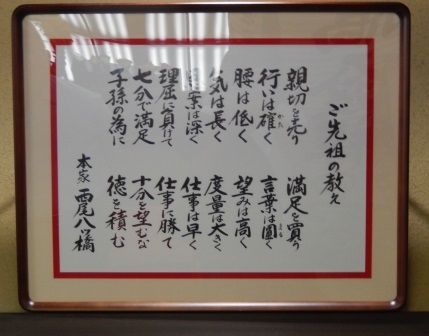 ご先祖の教え
親切を売り 満足を買う
行いは確く 言葉は圓く
かた まる
腰は低く 望みは高く
気は長く 度量は大きく
案は深く 仕事は早く
理屈に負けて 仕事に勝て
七分で満足 十分を望むな
子孫の為に 徳を積む
本家 西尾八ッ橋